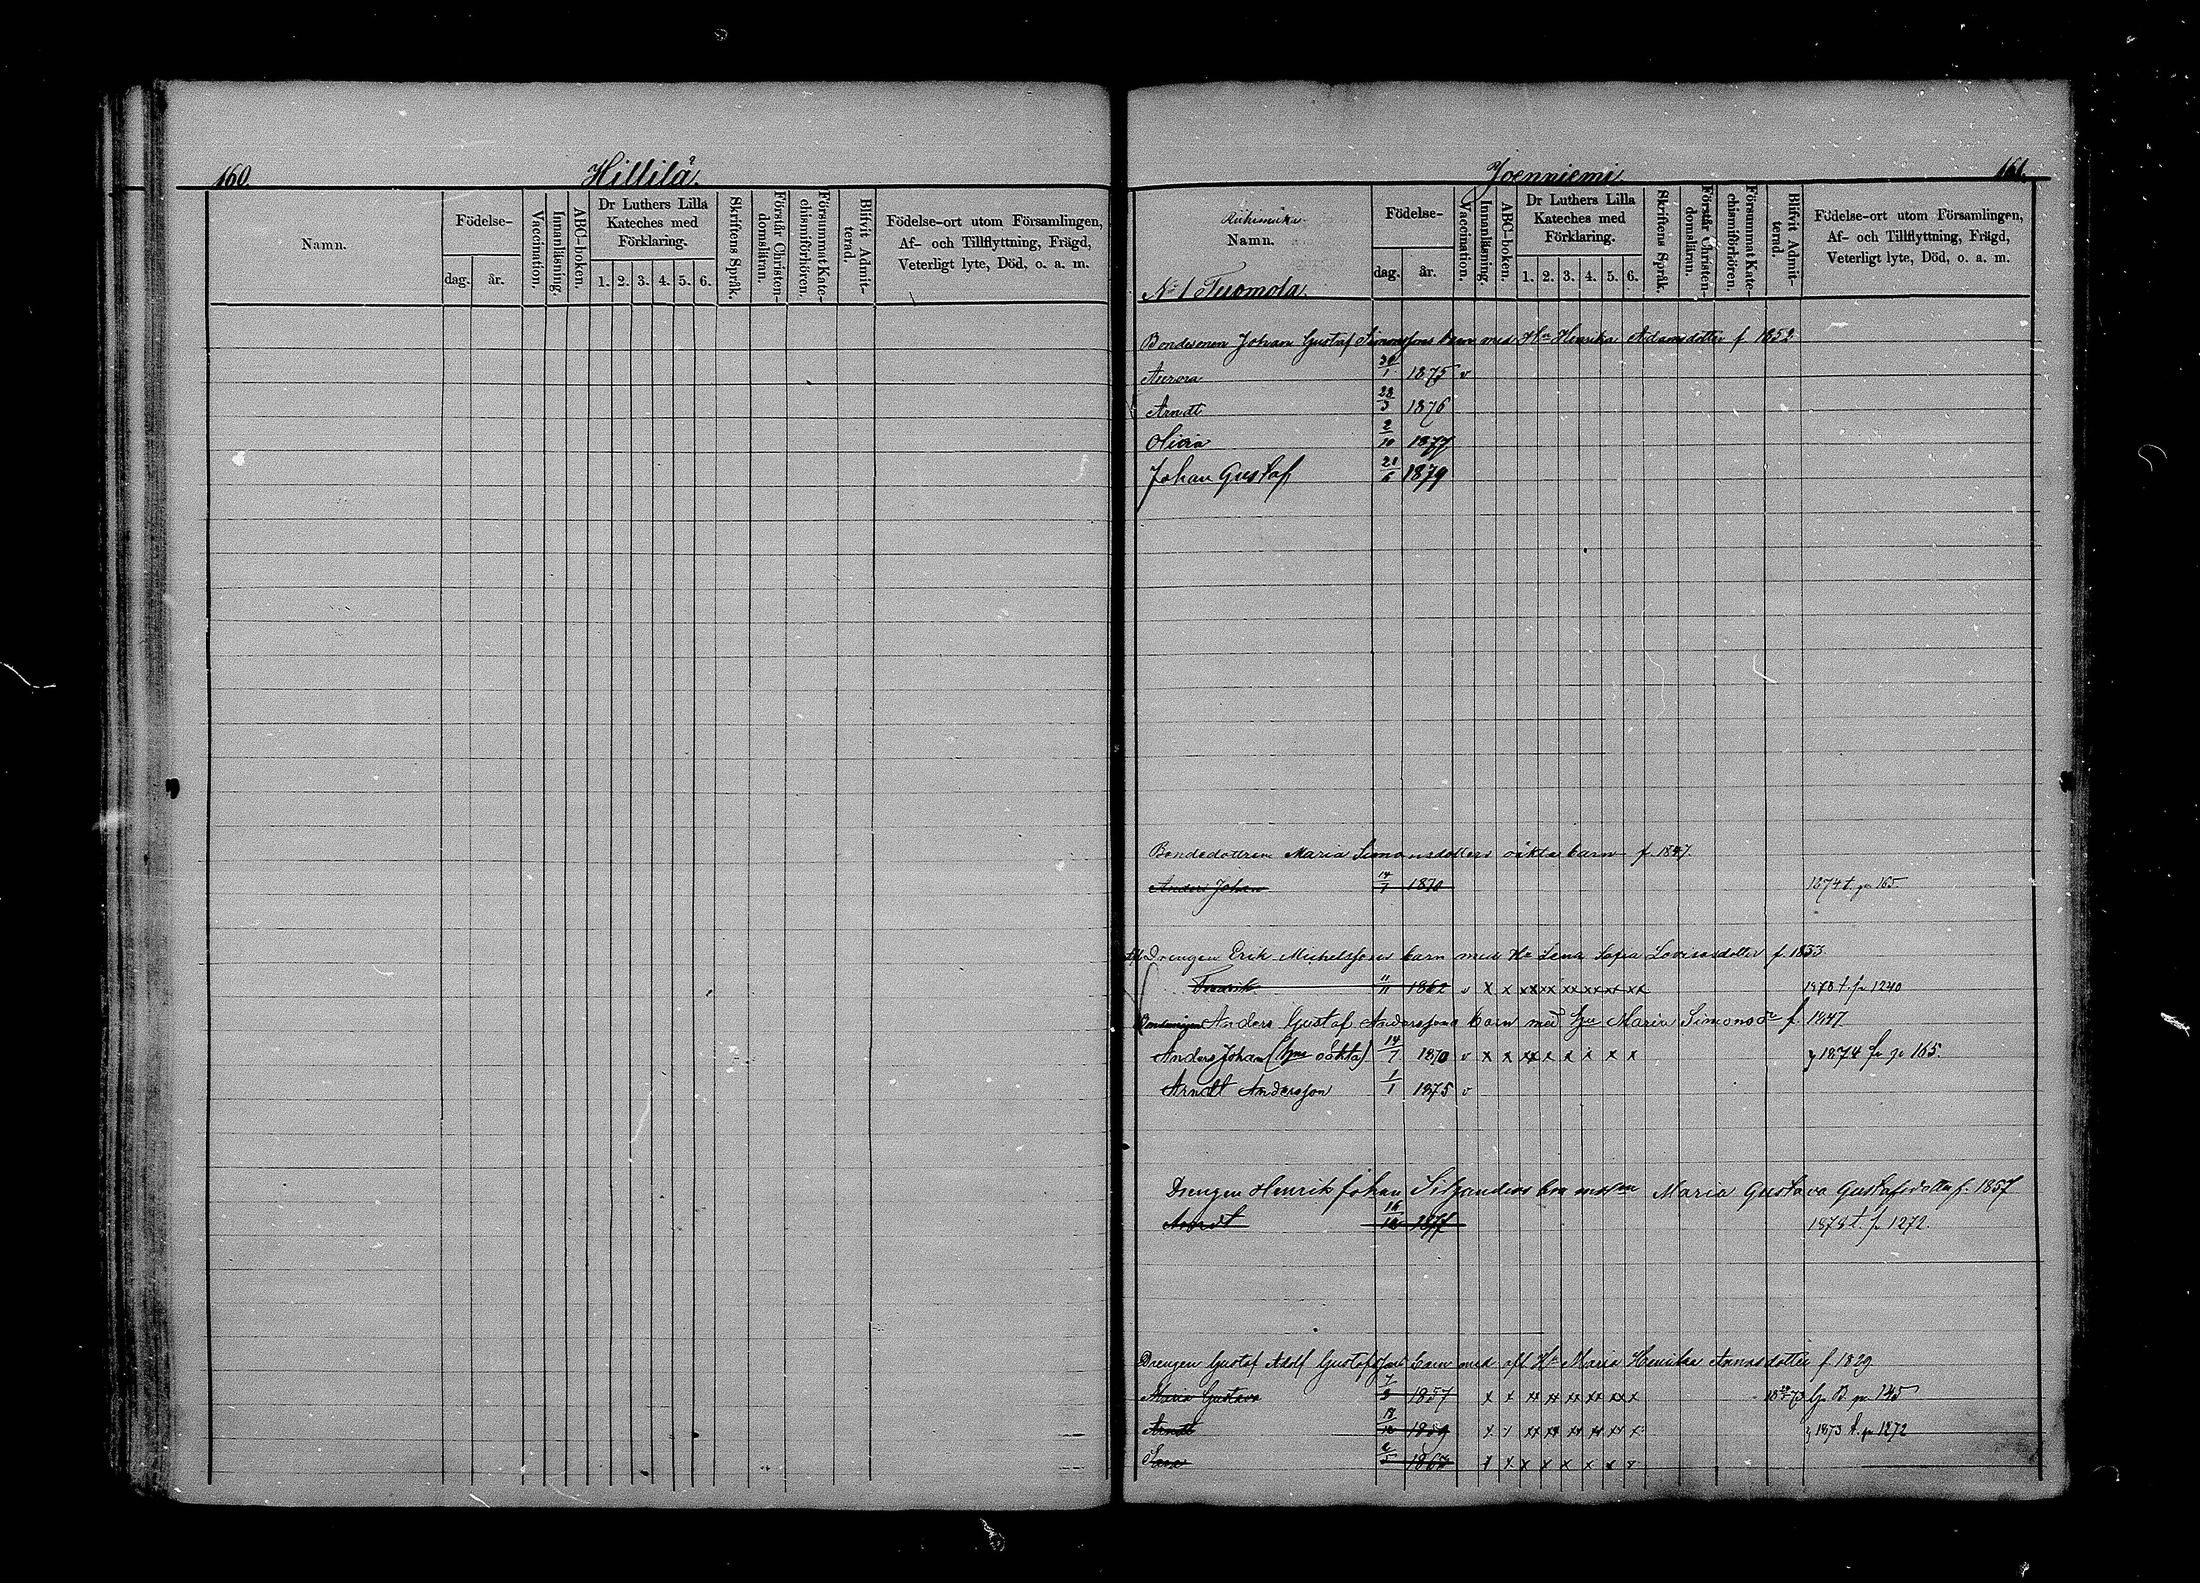 160.
Hillilä.
Namn.
Födelse-
dag.
år.
Vaccination.
Innanläsning.
ABC-boken.
Dr Luthers Lilla Kateches med Förklaring.
1. 2. 3. 4. 5. 6.
Skriftens Språk.
Förstår Christendomsläran.
Försummat Katechismiförhören.
Blifvit Admitterad.
Födelse-ort utom Församlingen, Af- och Tillflyttning, Frägd, Veterligt lyte, Död, o. a. m.
Joenniemi
161.
Namn.
Födelse-
dag.
år.
Vaccination.
Innanläsning.
ABC-boken.
Dr Luthers Lilla Kateches med Förklaring.
1. 2. 3. 4. 5. 6.
Skriftens Språk.
Förstår Christendomsläran.
Försummat Katechismiförhören.
Blifvit Admitterad.
Födelse-ort utom Församlingen, Af- och Tillflyttning, Frägd, Veterligt lyte, Död, o. a. m.
No 1 Tuomola.
Bondesonen Johan Gustaf Simonssons barn med Hu Henrika Adamsdotter f 1852
Aurora 30/1 1875 v
Arndt 23/3 1876
Olivia 2/10 1877
Johan Gustaf 21/6 1879
Bondedottren Maria Simonsdotters oäkta barn f. 1847.
Anders Johan 14/7 1870 1874 t. pa 165
Drengen Erik Michelssons barn med Hu Lena Sofia Lovisasdotter f. 1833
Fredrik 11/11 1862 v x x xx xx xx xx xx xx 1878 t. pa 1240
Anders Gustaf Anderssons barn med hu Maria Simonsdr f. 1847
Anders Johan (hns oäkta) 14/7 1870 v x x xx x x x x x 1874 fr pa 165.
Arndt Andersson 1/1 1875 v
Drengen Henrik Johan Silfvanders barn m Maria Gustava Gustafsdotter f. 1857
Arndt 16/12 1877 1878 t. pa 1272
Drengen Gustaf Adolf Gustafssons barn med afl Hu Maria Henrika Annasdotter f 1829
Maria Gustava 7/3 1857 x x xx xx xx xx xx x B. pa 145
Arndt 18/12 1859 x x xx xx xx xx xx x 1873 t. pa 1272
Sara 2/5 1867 x x x x x x x x